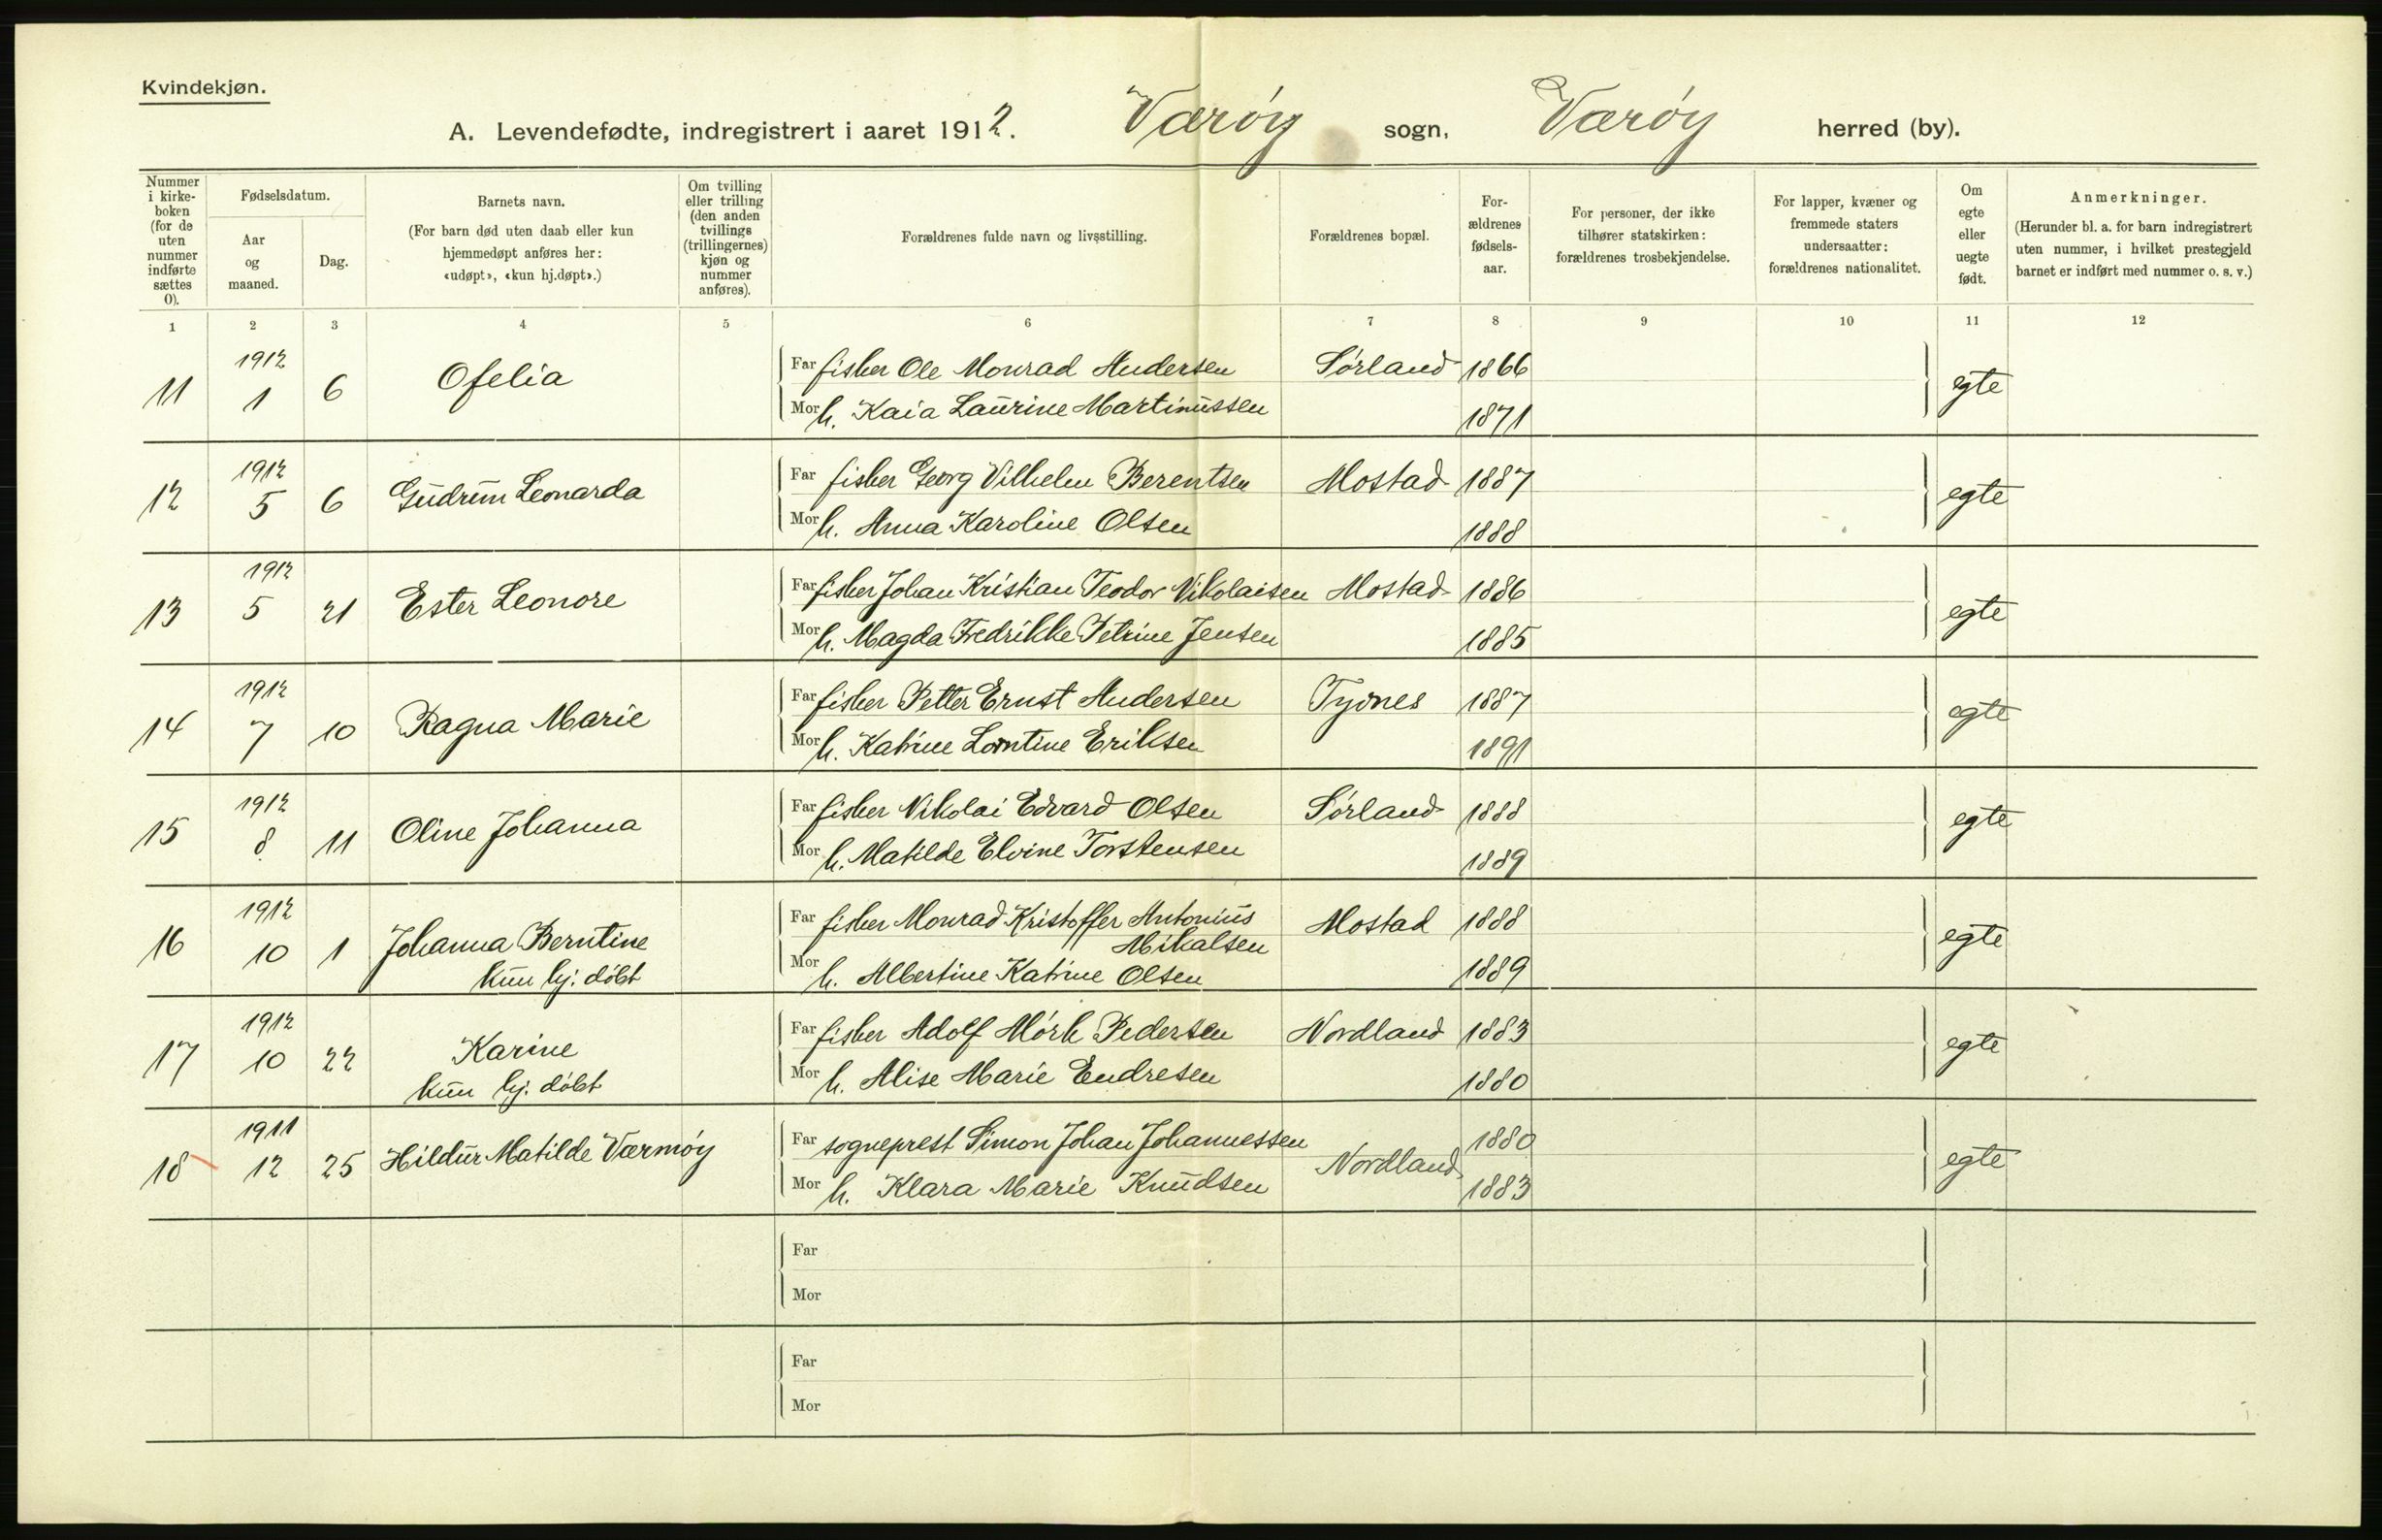 Kvindekjøn.
A. Levendefødte, indregistrert i aaret 1912. Værøy sogn, Værøy herred (by).
Nummer i kirke-boken (for de uten nummer indførte sættes 0).
Fødselsdatum.
Aar og maaned.
Dag.
Barnets navn.
(For barn død uten daab eller kun hjemmedøpt anføres her: «udøpt», «kun hj.døpt».)
Om tvilling eller trilling (den anden tvillings (trillingernes) kjøn og nummer anføres).
Forældrenes fulde navn og livsstilling.
Forældrenes bopæl.
For-ældrenes fødsels-aar.
For personer, der ikke tilhører statskirken: forældrenes trosbekjendelse.
For lapper, kvæner og fremmede staters undersaatter: forældrenes nationalitet.
Om egte eller uegte født.
Anmerkninger.
(Herunder bl. a. for barn indregistrert uten nummer, i hvilket prestegjeld barnet er indført med nummer o. s. v.)
1 2 3 4 5 6 7 8 9 10 11 12
1912
11 1 6 Ofelia Far fisker Ole Monrad Andersen Sørland 1866 egte
Mor h. Kaia Laurine Martinussen 1871
1912
12 5 6 Gudrun Leonarda Far fisker Georg Vilhelm Berentsen Mostad 1887 egte
Mor h. Anna Karoline Olsen 1888
1912
13 5 21 Ester Leonore Far fisker Johan Kristian Teodor Nikolaisen Mostad 1886 egte
Mor h. Magda Fredrikke Petrine Jensen 1885
1912
14 7 10 Ragna Marie Far fisker Petter Ernst Andersen Tyvnes 1887 egte
Mor h. Katrine Lorntine Eriksen 1891
1912
15 8 11 Oline Johanna Far fisker Nikolai Edvard Olsen Sørland 1888 egte
Mor h. Matilde Elvine Torstensen 1889
1912
16 10 1 Johanna Berntine Far fisker Monrad Kristoffer Antonius Mostad 1888 egte
Mikalsen
kun hj: døbt Mor h. Albertine Katrine Olsen 1889
1912
17 10 22 Karine Far fisker Adolf Mørk Pedersen Nordland 1883 egte
kun hj. døbt Mor h. Alise Marie Endresen 1880
1911
18 12 25 Hildur Matilde Værmøy Far sogneprest Simon Johan Johannessen Nordland 1880 egte
Mor h. Klara Marie Knudsen 1883
Far
Mor
Far
Mor